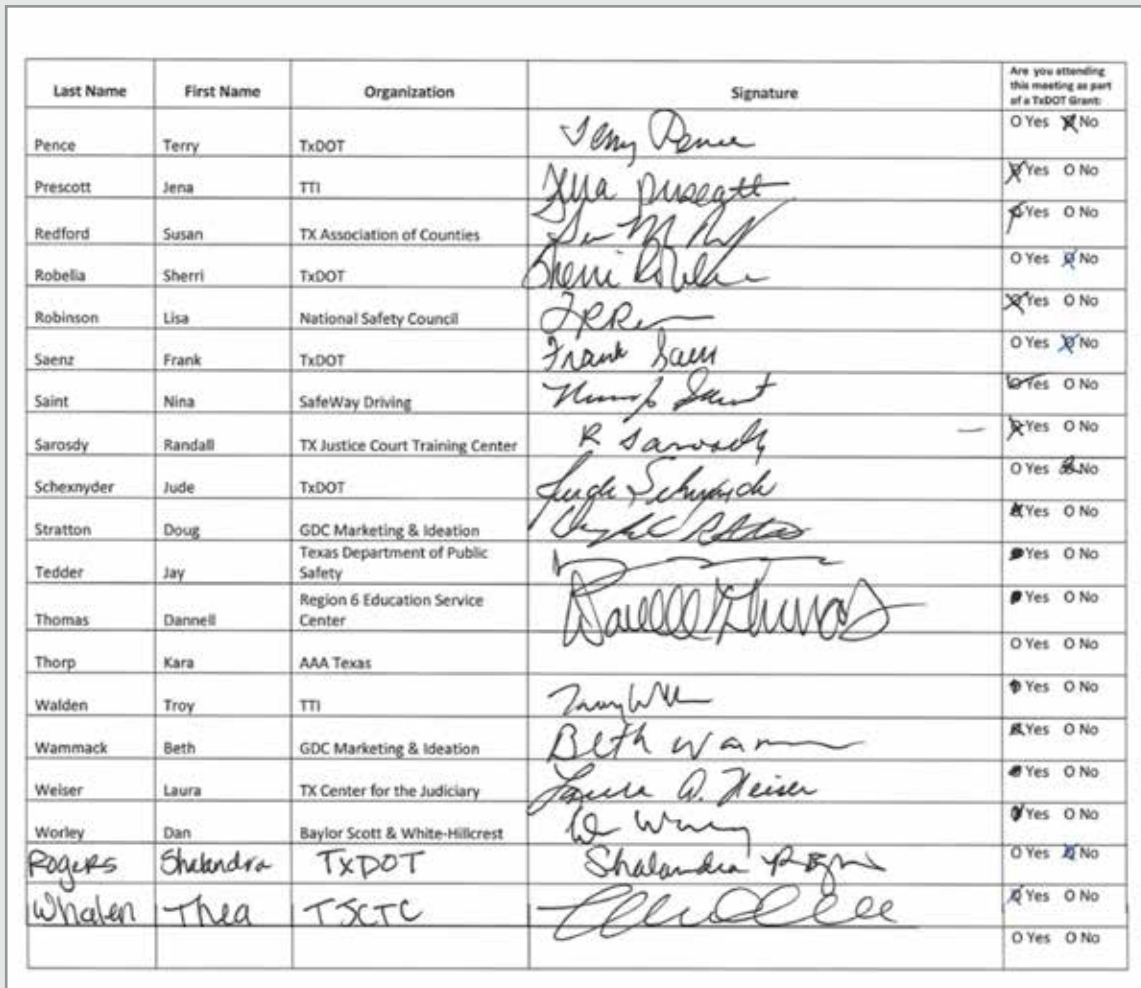 Last Name First Name Organization Signature Are you attending this meeting as part of a TxDOT Grant:
Pence Terry TxDOT Terry Pence O Yes O No
Prescott Jena TTI Jena Prescott O Yes O No
Redford Susan TX Association of Counties O Yes O No
Robelia Sherri TxDOT Sherri O Yes O No
Robinson Lisa National Safety Council O Yes O No
Saenz Frank TxDOT Frank Saenz O Yes O No
Saint Nina SafeWay Driving Saint O Yes O No
Sarosdy Randall TX Justice Court Training Center R Sarosdy O Yes O No
Schexnyder Jude TxDOT Jude O Yes O No
Stratton Doug GDC Marketing & Ideation O Yes O No
Tedder Jay Texas Department of Public Safety O Yes O No
Thomas Dannell Region 6 Education Service Center O Yes O No
Thorp Kara AAA Texas O Yes O No
Walden Troy TTI Troy O Yes O No
Wammack Beth GDC Marketing & Ideation Beth O Yes O No
Weiser Laura TX Center for the Judiciary Laura A. Weiser O Yes O No
Worley Dan Baylor Scott & White-Hillcrest O Yes O No
Rogers Shalandra TxDOT Shalandra O Yes O No
Whalen Thea TJCTC O Yes O No
O Yes O No